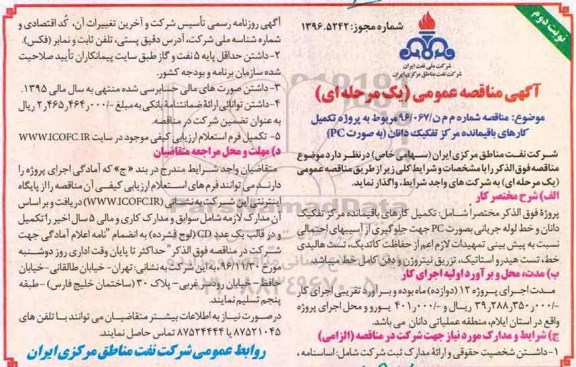 نوبت دوم
شماره مجوز: ۱۳۹۶.۵۲۴۲
شرکت ملی نفت ایران
شرکت نفت مناطق مرکزی ایران
آگهی مناقصه عمومی (یک مرحله ای)
موضوع: مناقصه شماره م م ن/۹۶۰۰۶۷ مربوط به پروژه تکمیل
کارهای باقیمانده مرکز تفکیک دانان (به صورت PC)
شرکت نفت مناطق مرکزی ایران (سهامی خاص) در نظر دارد موضوع
مناقصه فوق الذکر را با مشخصات و شرایط کلی زیر از طریق مناقصه عمومی
(یک مرحله ای) به شرکت های واجد شرایط، واگذار نماید.
الف) شرح مختصر کار
پروژه فوق الذکر مختصراً شامل: تکمیل کارهای باقیمانده مرکز تفکیک
دانان و خط لوله جریانی بصورت PC جهت جلوگیری از آسیبهای احتمالی
نسبت به پیش بینی تمهیدات لازم اعم از حفاظت کاتدیک، تست هالیدی
خط، تست هیدرواستاتیک، تزریق نیتروژن و دفن کامل خط میباشد.
ب) مدت، محل و برآورد اولیه اجرای کار
مدت اجرای پروژه ۱۲ (دوازده) ماه بوده و برآورد تقریبی اجرای کار
۳۹,۲۸۸,۳۵۰,۰۰۰ ریال و ۴۰۱,۰۰۰ یورو و محل اجرای پروژه
واقع در استان ایلام، منطقه عملیاتی دانان می باشد.
ج) شرایط و مدارک مورد نیاز جهت شرکت در مناقصه (الزامی)
۱- داشتن شخصیت حقوقی و ارائه مدارک ثبت شرکت شامل: اساسنامه،
آگهی روزنامه رسمی تأسیس شرکت و آخرین تغییرات آن، کد اقتصادی و
شماره شناسه ملی شرکت، آدرس دقیق پستی، تلفن ثابت و نمابر (فکس).
۲- داشتن حداقل پایه ۵ نفت و گاز طبق سایت پیمانکاران تأیید صلاحیت
شده سازمان برنامه و بودجه کشور.
۳- داشتن صورت های مالی حسابرسی شده منتهی به سال مالی ۱۳۹۵.
۴- داشتن توانائی ارائه ضمانتنامه بانکی به مبلغ ۲,۴۶۵,۴۶۴,۰۰۰ ریال
به عنوان تضمین شرکت در مناقصه.
۵- تکمیل فرم استعلام ارزیابی کیفی موجود در سایت WWW.ICOFC.IR
د) مهلت و محل مراجعه متقاضیان
متقاضیان واجد شرایط مندرج در بند «ج» که آمادگی اجرای پروژه را
دارند می توانند فرم های استعلام ارزیابی کیفی آن مناقصه را از پایگاه
اینترنتی این شرکت به نشانی (WWW.ICOFC.IR) دریافت و بر اساس
آن مدارک لازمه شامل سوابق و مدارک کاری و مالی ۵ سال اخیر را تکمیل
و در قالب یک عدد CD (لوح فشرده) به انضمام "نامه اعلام آمادگی جهت
شرکت در مناقصه فوق الذکر" حداکثر تا پایان وقت اداری روز دوشنبه
مورخ ۹۶/۱۱/۳۰، به این شرکت به نشانی: تهران - خیابان طالقانی - خیابان
حافظ - خیابان رودسر غربی - پلاک ۳۰ (ساختمان خلیج فارس) - طبقه
پنجم تسلیم نمایند.
در صورت نیاز به اطلاعات بیشتر متقاضیان می توانند با تلفن های
۸۷۵۲۱۰۴۵ یا ۸۷۵۲۴۴۴۴ تماس حاصل نمایند.
روابط عمومی شرکت نفت مناطق مرکزی ایران